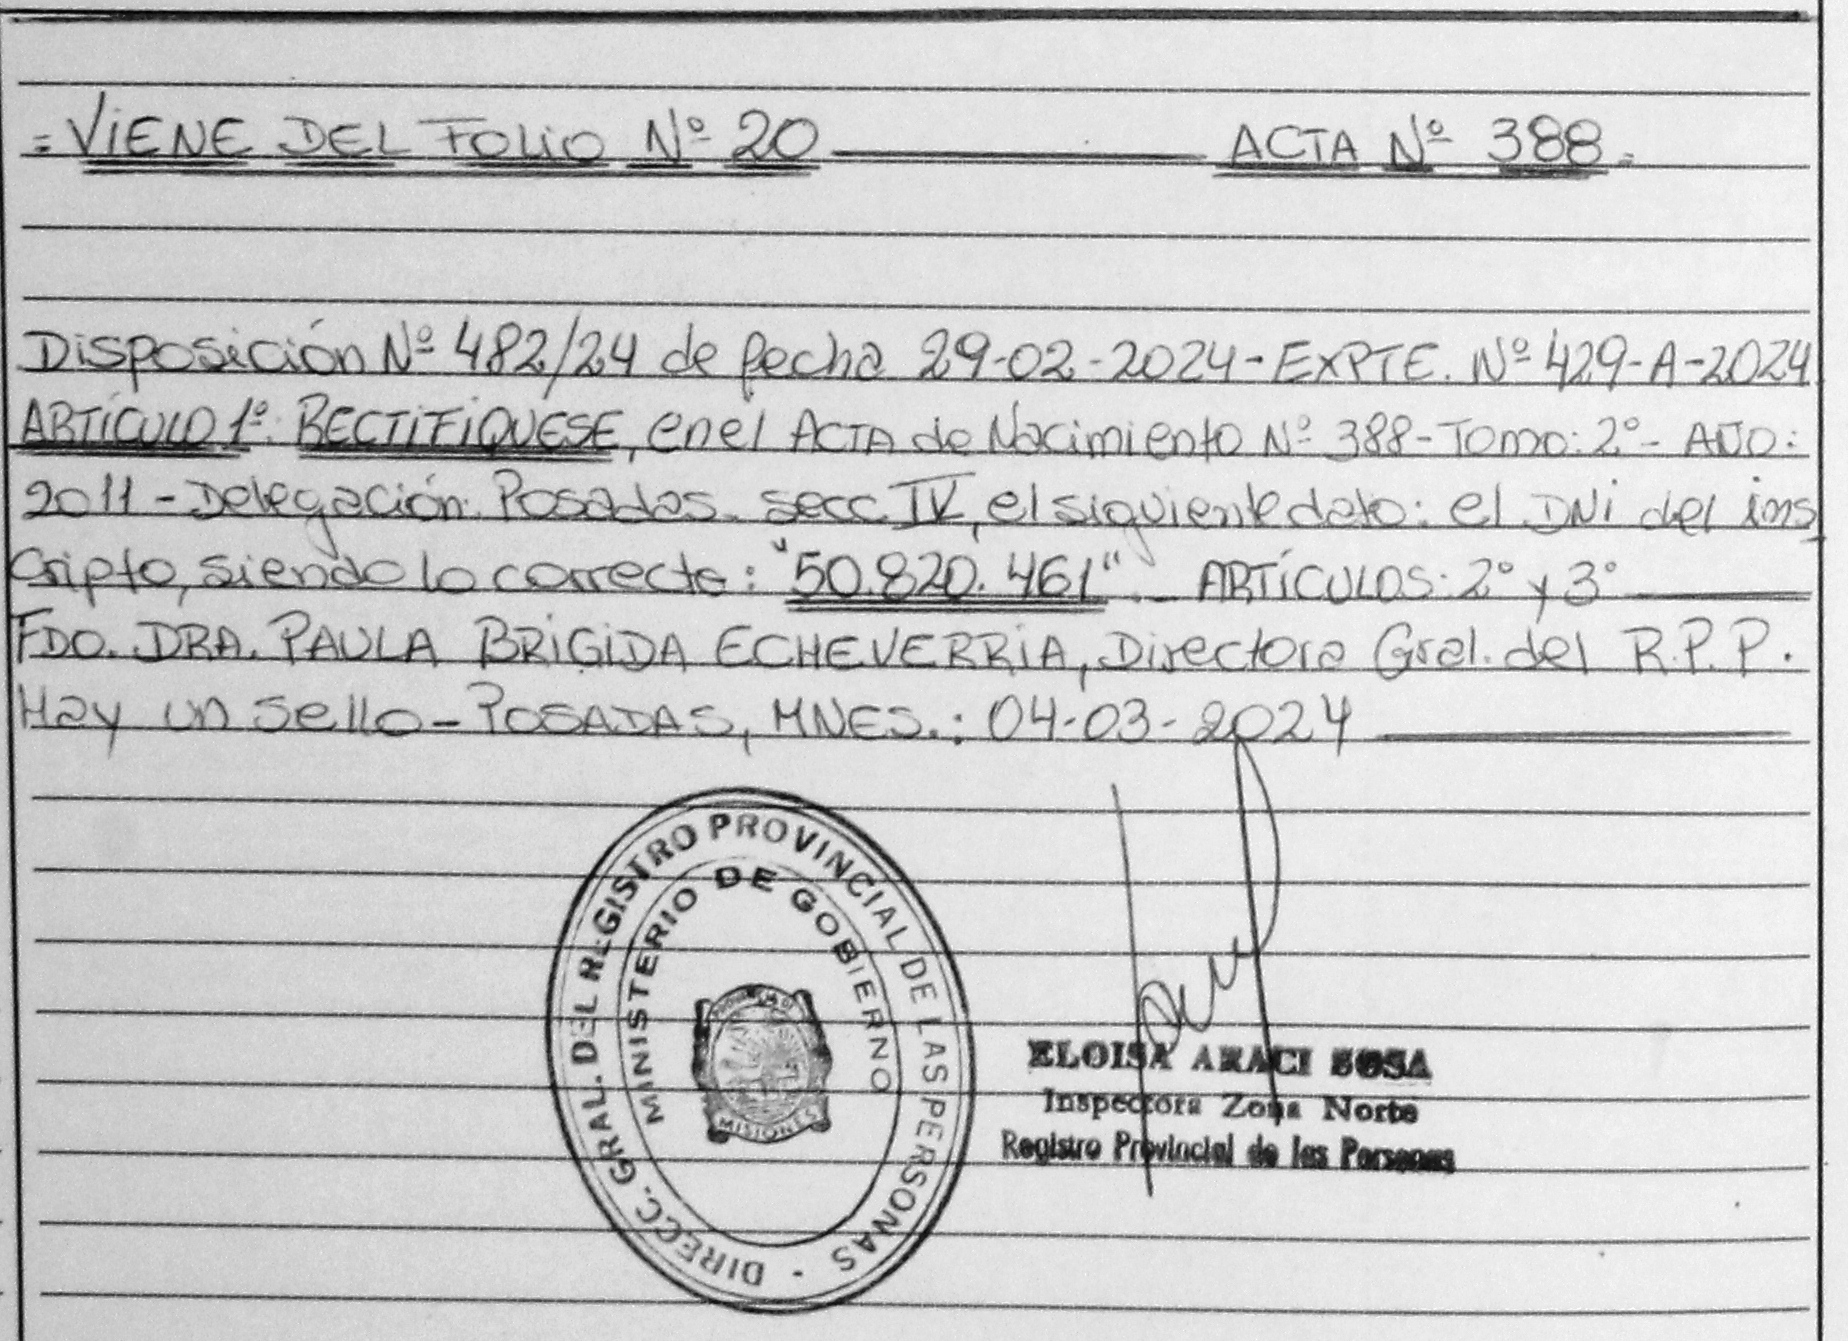 = VIENE DEL FOLIO Nº 20 ACTA Nº 388.=
Disposición Nº 482/24 de fecha 29-02-2024- EXPTE. Nº 429-A-2024
ARTÍCULO 1º: RECTIFIQUESE, en el ACTA de Nacimiento Nº 388-Tomo: 2º- AÑO:
2011 - Delegación: Posadas. secc IV, el siguiente dato: el DNI del ins
cripto, siendo lo correcto: "50.820.461".- ARTÍCULOS: 2º y 3º
FDO. DRA. PAULA BRIGIDA ECHEVERRIA, Directora Gral. del R.P.P.
Hay un sello - POSADAS, MNES.: 04-03-2024
DIRECC. GRAL. DEL REGISTRO PROVINCIAL DE LAS PERSONAS
MINISTERIO DE GOBIERNO
MISIONES
ELOISA ARACI SOSA
Inspectora Zona Norte
Registro Provincial de las Personas